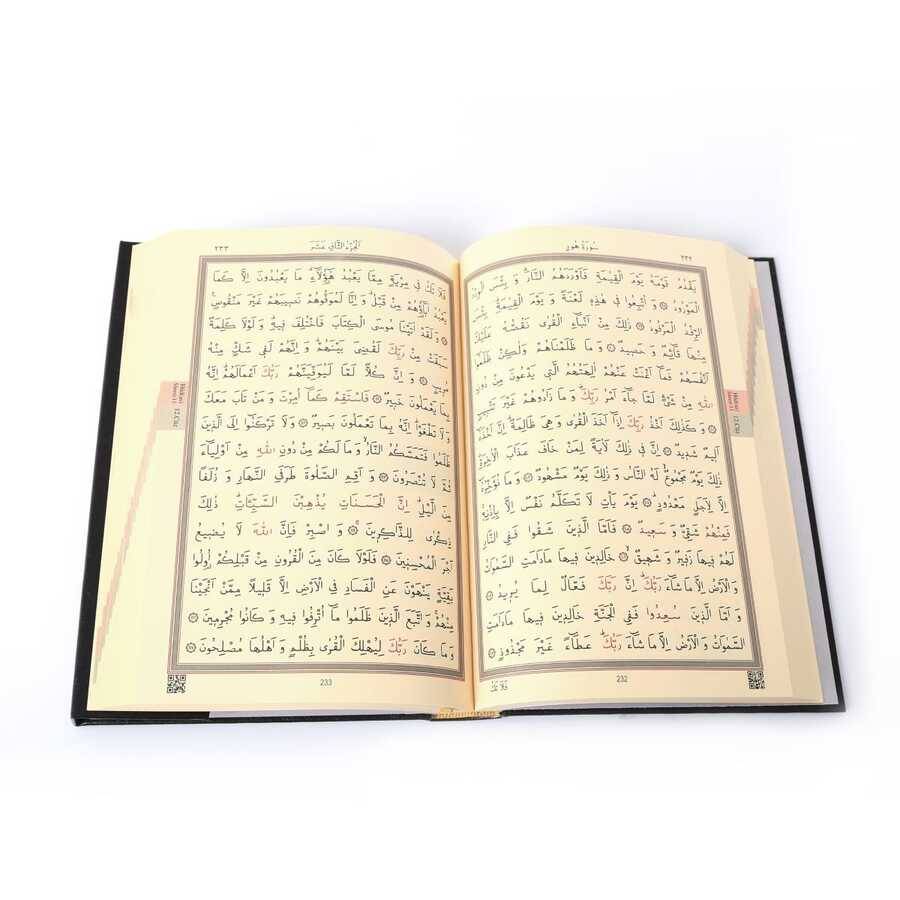 سُورَةُ هُودٍ
٢٣٢
يَقْدُمُ قَوْمَهُ يَوْمَ الْقِيٰمَةِ فَاَوْرَدَهُمُ النَّارَۜ وَ بِئْسَ الْوِرْدُ
الْمَوْرُودُ ۞ وَ اُتْبِعُوا فِي هٰذِهِ لَعْنَةً وَ يَوْمَ الْقِيٰمَةِۜ بِئْسَ
الرِّفْدُ الْمَرْفُودُ ۞ ذٰلِكَ مِنْ اَنْبَٓاءِ الْقُرٰى نَقُصُّهُ عَلَيْكَ
مِنْهَا قَٓائِمٌ وَ حَصِيدٌ ۞ وَ مَا ظَلَمْنَاهُمْ وَلٰكِنْ ظَلَمُٓوا
اَنْفُسَهُمْ فَمَٓا اَغْنَتْ عَنْهُمْ اٰلِهَتُهُمُ الَّتِي يَدْعُونَ مِنْ دُونِ
اللّٰهِ مِنْ شَيْءٍ لَمَّا جَٓاءَ اَمْرُ رَبِّكَۜ وَ مَا زَادُوهُمْ غَيْرَ تَتْبِيبٍ
۞ وَ كَذٰلِكَ اَخْذُ رَبِّكَ اِذَٓا اَخَذَ الْقُرٰى وَ هِيَ ظَالِمَةٌۜ اِنَّ اَخْذَهُٓ
اَلِيمٌ شَدِيدٌ ۞ اِنَّ فِي ذٰلِكَ لَاٰيَةً لِمَنْ خَافَ عَذَابَ الْاٰخِرَةِۜ
ذٰلِكَ يَوْمٌ مَجْمُوعٌ لَهُ النَّاسُ وَ ذٰلِكَ يَوْمٌ مَشْهُودٌ ۞ وَ مَا نُؤَخِّرُهُٓ
اِلَّا لِاَجَلٍ مَعْدُودٍۜ ۞ يَوْمَ يَأْتِ لَا تَكَلَّمُ نَفْسٌ اِلَّا بِاِذْنِهِۚ
فَمِنْهُمْ شَقِيٌّ وَ سَعِيدٌ ۞ فَاَمَّا الَّذِينَ شَقُوا فَفِي النَّارِ
لَهُمْ فِيهَا زَفِيرٌ وَ شَهِيقٌۙ ۞ خَالِدِينَ فِيهَا مَادَامَتِ السَّمٰوَاتُ
وَ الْاَرْضُ اِلَّا مَا شَٓاءَ رَبُّكَۜ اِنَّ رَبَّكَ فَعَّالٌ لِمَا يُرِيدُ ۞
وَ اَمَّا الَّذِينَ سُعِدُوا فَفِي الْجَنَّةِ خَالِدِينَ فِيهَا مَادَامَتِ
السَّمٰوَاتُ وَ الْاَرْضُ اِلَّا مَا شَٓاءَ رَبُّكَۜ عَطَٓاءً غَيْرَ مَجْذُوذٍ ۞
232
فَلَا تَكُ
12.Cüz
اَلْجُزْءُ الثَّانِي عَشَرَ
٢٣٣
فَلَا تَكُ فِي مِرْيَةٍ مِمَّا يَعْبُدُ هٰٓؤُلَٓاءِۜ مَا يَعْبُدُونَ اِلَّا كَمَا
يَعْبُدُ اٰبَٓاؤُهُمْ مِنْ قَبْلُۜ وَ اِنَّا لَمُوَفُّوهُمْ نَصِيبَهُمْ غَيْرَ مَنْقُوصٍ
۞ وَ لَقَدْ اٰتَيْنَا مُوسَى الْكِتَابَ فَاخْتُلِفَ فِيهِۜ وَ لَوْلَا كَلِمَةٌ
سَبَقَتْ مِنْ رَبِّكَ لَقُضِيَ بَيْنَهُمْۜ وَ اِنَّهُمْ لَفِي شَكٍّ مِنْهُ
مُرِيبٍ ۞ وَ اِنَّ كُلًّا لَمَّا لَيُوَفِّيَنَّهُمْ رَبُّكَ اَعْمَالَهُمْۜ اِنَّهُ
بِمَا يَعْمَلُونَ خَبِيرٌ ۞ فَاسْتَقِمْ كَمَٓا اُمِرْتَ وَ مَنْ تَابَ مَعَكَ
وَ لَا تَطْغَوْاۜ اِنَّهُ بِمَا تَعْمَلُونَ بَصِيرٌ ۞ وَ لَا تَرْكَنُٓوا اِلَى الَّذِينَ
ظَلَمُوا فَتَمَسَّكُمُ النَّارُۙ وَ مَا لَكُمْ مِنْ دُونِ اللّٰهِ مِنْ اَوْلِيَٓاءَ
ثُمَّ لَا تُنْصَرُونَ ۞ وَ اَقِمِ الصَّلٰوةَ طَرَفَيِ النَّهَارِ وَ زُلَفًا
مِنَ الَّيْلِۜ اِنَّ الْحَسَنَاتِ يُذْهِبْنَ السَّيِّـَٔاتِۜ ذٰلِكَ
ذِكْرٰى لِلذَّاكِرِينَۚ ۞ وَ اصْبِرْ فَاِنَّ اللّٰهَ لَا يُضِيعُ
اَجْرَ الْمُحْسِنِينَ ۞ فَلَوْلَا كَانَ مِنَ الْقُرُونِ مِنْ قَبْلِكُمْ اُولُوا
بَقِيَّةٍ يَنْهَوْنَ عَنِ الْفَسَادِ فِي الْاَرْضِ اِلَّا قَلِيلًا مِمَّنْ اَنْجَيْنَا
مِنْهُمْۚ وَ اتَّبَعَ الَّذِينَ ظَلَمُوا مَٓا اُتْرِفُوا فِيهِ وَ كَانُوا مُجْرِمِينَ ۞
وَ مَا كَانَ رَبُّكَ لِيُهْلِكَ الْقُرٰى بِظُلْمٍ وَ اَهْلُهَا مُصْلِحُونَ ۞
233
12.Cüz